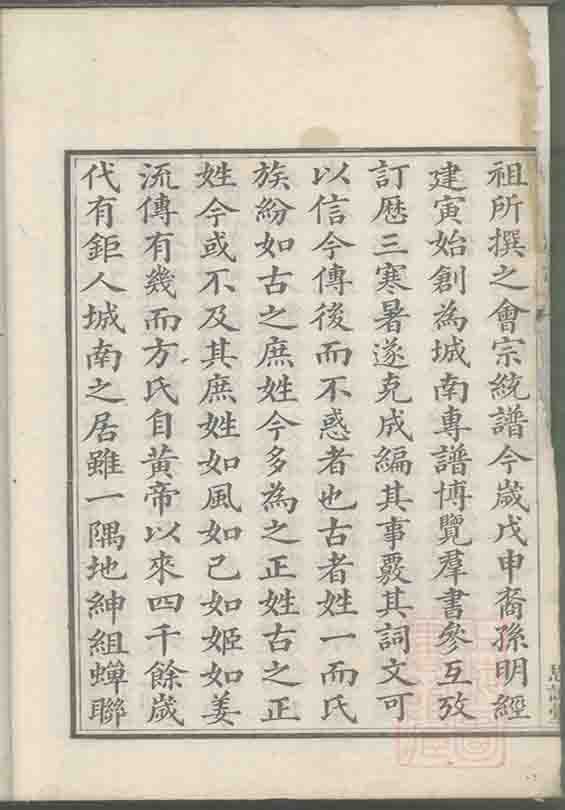 祖所撰之會宗統譜今歲戊申裔孫明經
建寅始創為城南專譜博覽羣書參互攷
訂歷三寒暑遂克成編其事覈其詞文可
以信今傳後而不惑者也古者姓一而氏
族紛如古之庶姓今多為之正姓古之正
姓今或不及其庶姓如風如己如姬如姜
流傳有幾而方氏自黃帝以來四千餘歲
代有鉅人城南之居雖一隅地紳組蟬聯